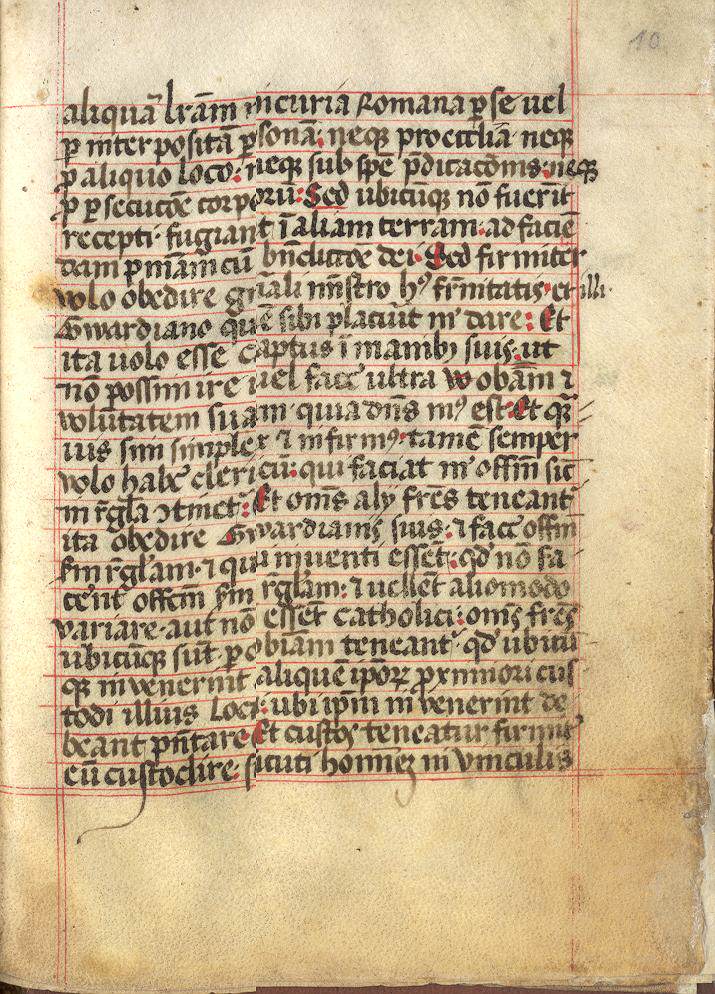 10
aliquā lrām in curia Romana ꝑ se uel
ꝑ interpositā ꝑsonā: neqꝫ pro eccliā neqꝫ
ꝓ aliquo loco: neqꝫ sub spe p̄dicacōnis: neqꝫ
ꝓ ꝑsecucōe corporū: Sed ubicūqꝫ nō fuerīt
recepti. fugiant ī aliam terram. ad faciē
dam pnīam cū bn̄dictōe dei. Sed firmiter
volo obedire gn̄ali mīstro hꝰ fr̄nitatis. et illi
Gwardiano quē sibi placuīt m̄ dare: Et
ita uolo esse captus ī manibꝫ suis. ut
nō possim ire uel facē ultra obām ⁊
volūtatem suam. quia dn̄s mꝰ est. Et qr̄
uis sim simplex ⁊ infirmꝰ. tamē semper
volo habē clericū: qui faciat m̄ offm̄ sic̄
in rḡla ↄtinet̄: Et om̄s alij fr̄es teneant̄
ita obedire Gwardianis suis. ⁊ facē offm̄
scd̄m rḡlam. ⁊ qui inuenti essēt. qd̄ nō fa
cerīt offm̄ scd̄m rḡlam: ⁊ uellēt alio modo
variare. aut nō essēt catholici: om̄s fr̄es
ubicūqꝫ sūt. ꝑ obīam teneant̄. qd̄ ubicū
qꝫ invenerint aliquē ip̄oꝝ ꝓxinmiori cus
todi illius loci. ubi ip̄m invenerint de
beant pn̄tare. Et custos teneatur firmit̄
eū custodire. sicuti hominē in vinculis